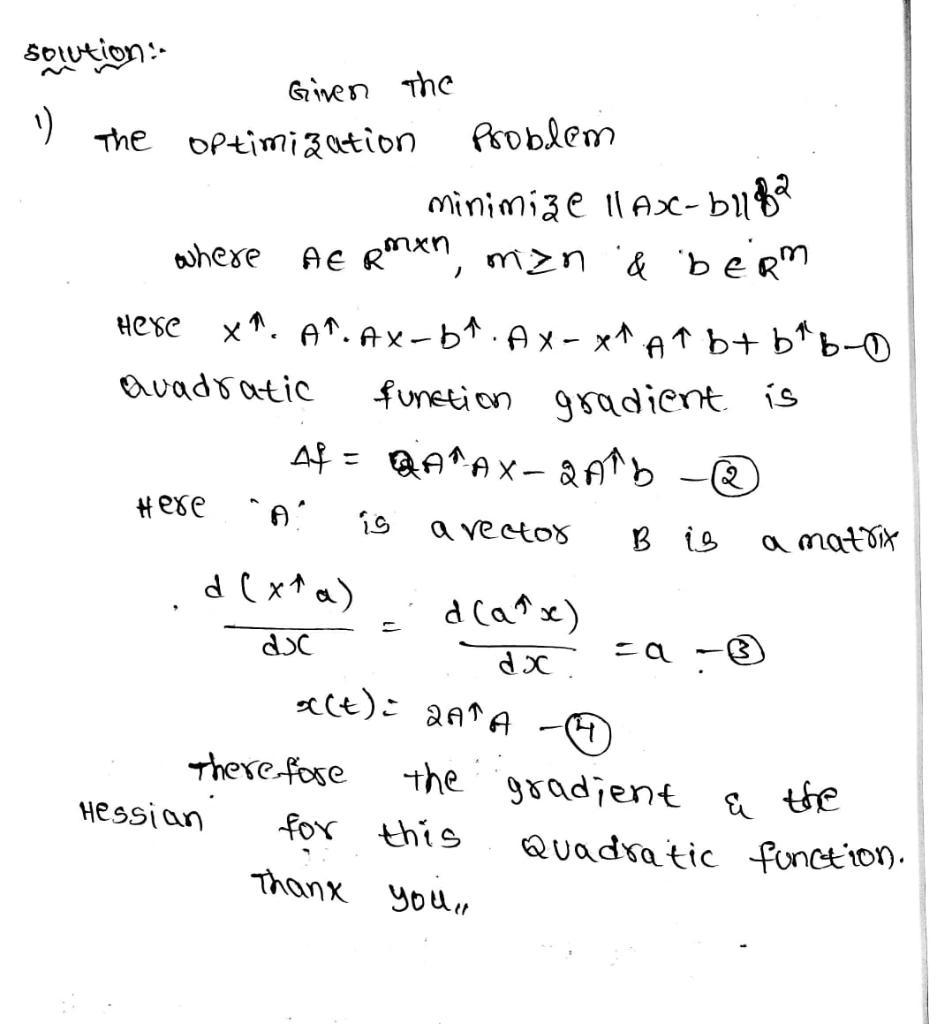 solution:-
Given The
1) The optimization Problem
minimize ||Ax-b||²
where A∈ R^mxn, m≥n & b∈R^m
Here x↑. A↑. Ax-b↑. Ax-x↑A↑b+b↑b-①
Quadratic function gradient is
Δf = 2A↑Ax-2A↑b -②
Here "A" is a vector B is a matrix
d(x↑a)/dx = d(a↑x)/dx = a -③
x(t)= 2A↑A -④
Therefore the gradient & the
Hessian for this Quadratic function.
Thanx you,,